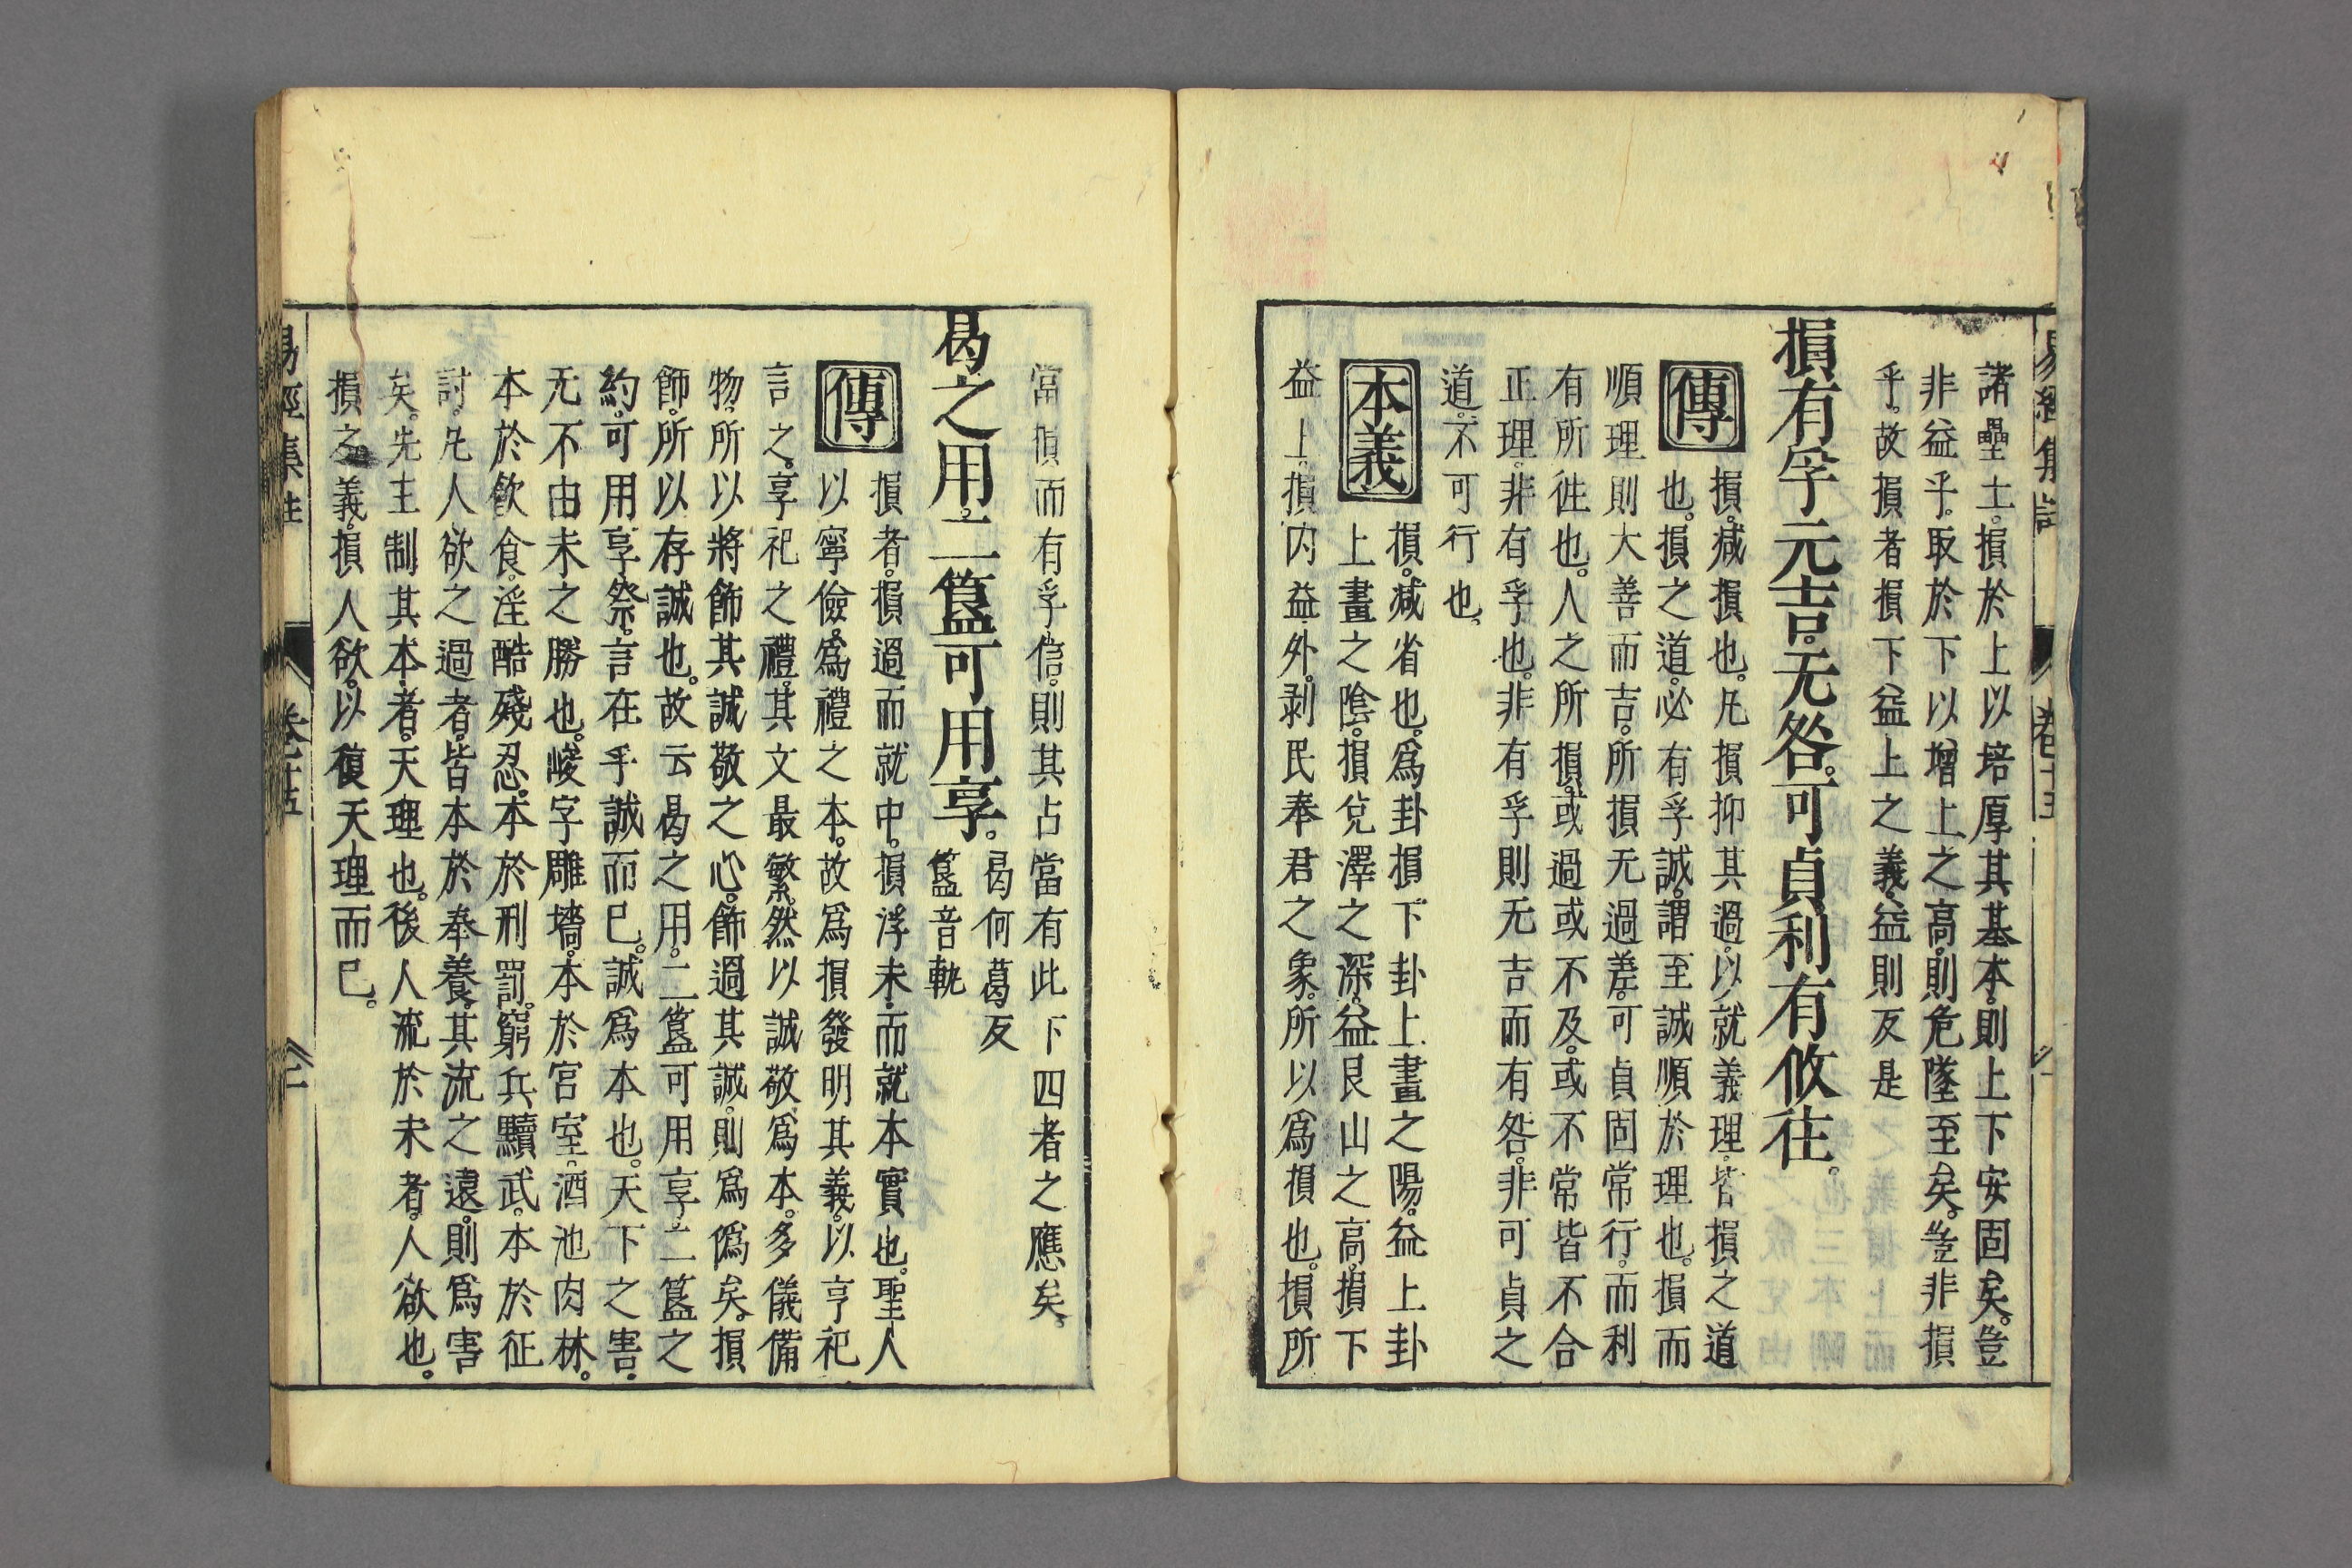 諸壘土。損於上以培厚其基本。則上下安固矣。豈
非益乎。取於下以增上之高。則危墜至矣。豈非損
乎。故損者損下益上之義。益則反是
損有孚元吉。无咎。可貞。利有攸往。
傳
損。減損也。凡損抑其過。以就義理。皆損之道
也。損之道。必有孚誠。謂至誠順於理也。損而
順理則大善而吉。所損无過差。可貞固常行。而利
有所往也。人之所損。或過或不及。或不常皆不合
正理。非有孚也。非有孚則无吉而有咎。非可貞之
道。不可行也。
本義
損。減省也。爲卦損下卦上畫之陽。益上卦
上畫之陰。損兌澤之深。益艮山之高。損下
益上。損內益外。剥民奉君之象。所以爲損也。損所
當損而有孚信。則其占當有此下四者之應矣。
曷之用。二簋可用享。
曷何葛反
簋音軌
傳
損者。損過而就中。損浮末。而就本實也。聖人
以寧儉。爲禮之本。故爲損發明其義。以亨祀
言之。享祀之禮。其文最繁。然以誠敬爲本。多儀備
物。所以將飾其誠敬之心。飾過其誠。則爲僞矣。損
飾。所以存誠也。故云曷之用。二簋可用享。二簋之
約。可用享祭。言在乎誠而已。誠爲本也。天下之害。
无不由末之勝也。峻宇雕墻。本於宮室。酒池肉林。
本於飲食。淫酷殘忍。本於刑罰。窮兵黷武。本於征
討。凡人欲之過者。皆本於奉養。其流之遠。則爲害
矣。先王制其本者。天理也。後人流於末者。人欲也。
損之義。損人欲。以復天理而已。
易經集註
卷十五
二